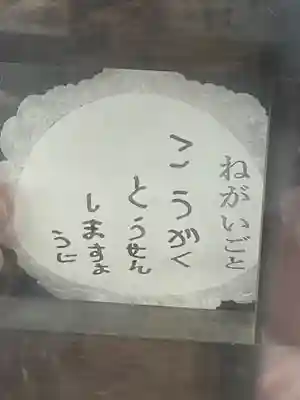 ねがいごと
こうがく
とうせん
しますよ
うに